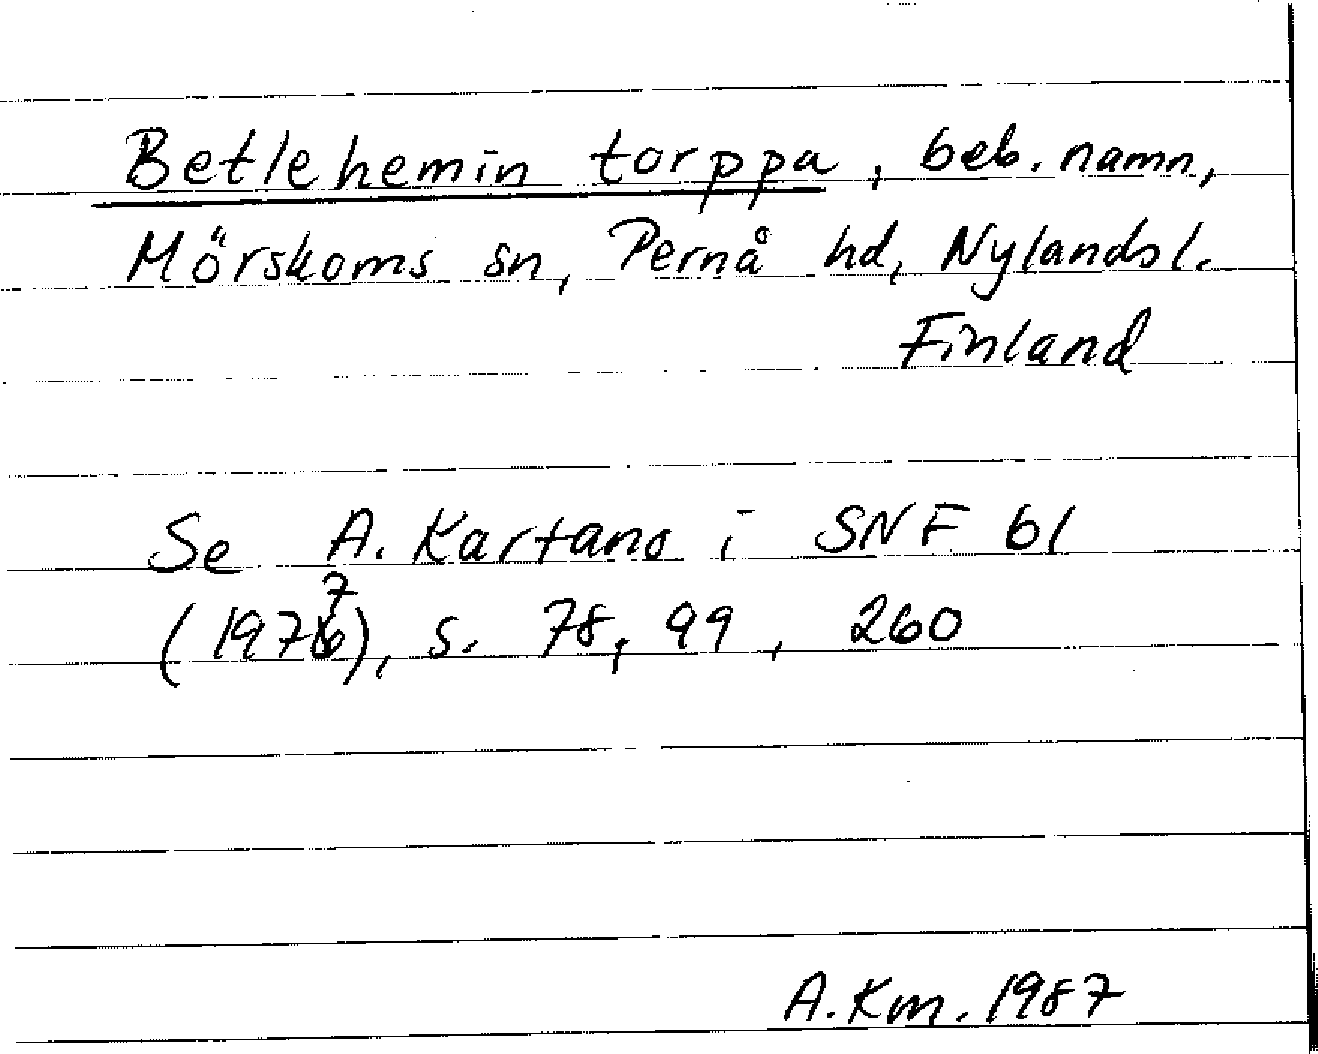 Betlehemin torppa, beb. namn,
Mörskoms sn, Pernå hd, Nylands l.
Finland
Se A. Kartano i SNF 61
(1977), s. 78, 99, 260
A. Km. 1987